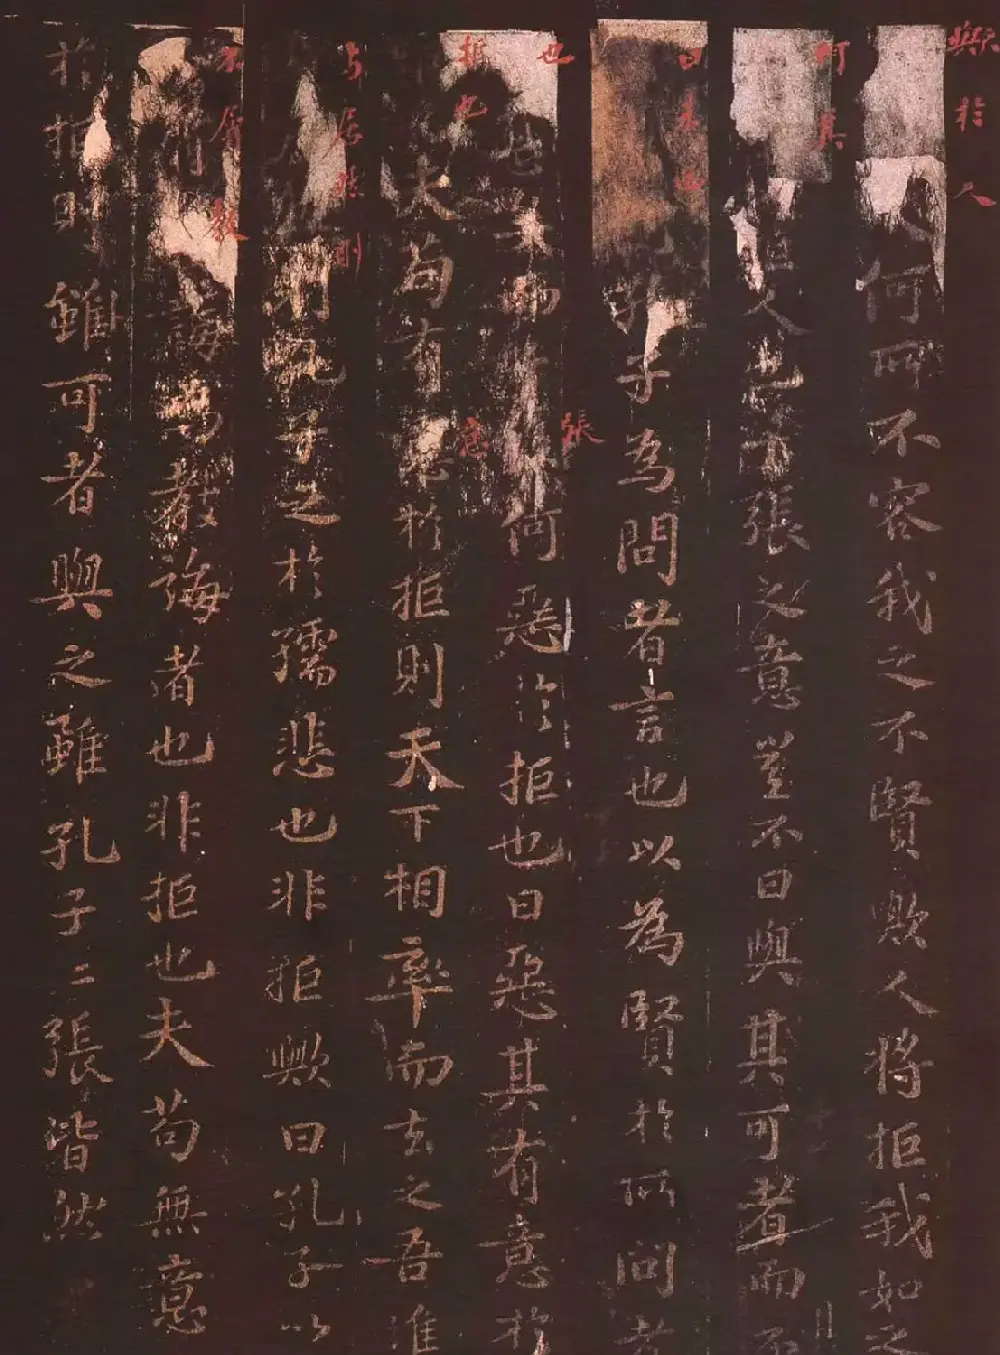 歟於人
人何所不容我之不賢歟人將拒我如之
何其
拒人也子張之意豈不曰與其可者而不
曰未也
孔子為問者言也以為賢於所問者
也 張
而何惡於拒也曰惡其有意於
拒也 意
夫苟有意於拒則天下相率而去之吾誰
與 於則
則孔子之於孺悲也非拒歟曰孔子以
不屑教
誨為教誨者也非拒也夫苟無意
於拒則雖可者與之雖孔子〻張皆然